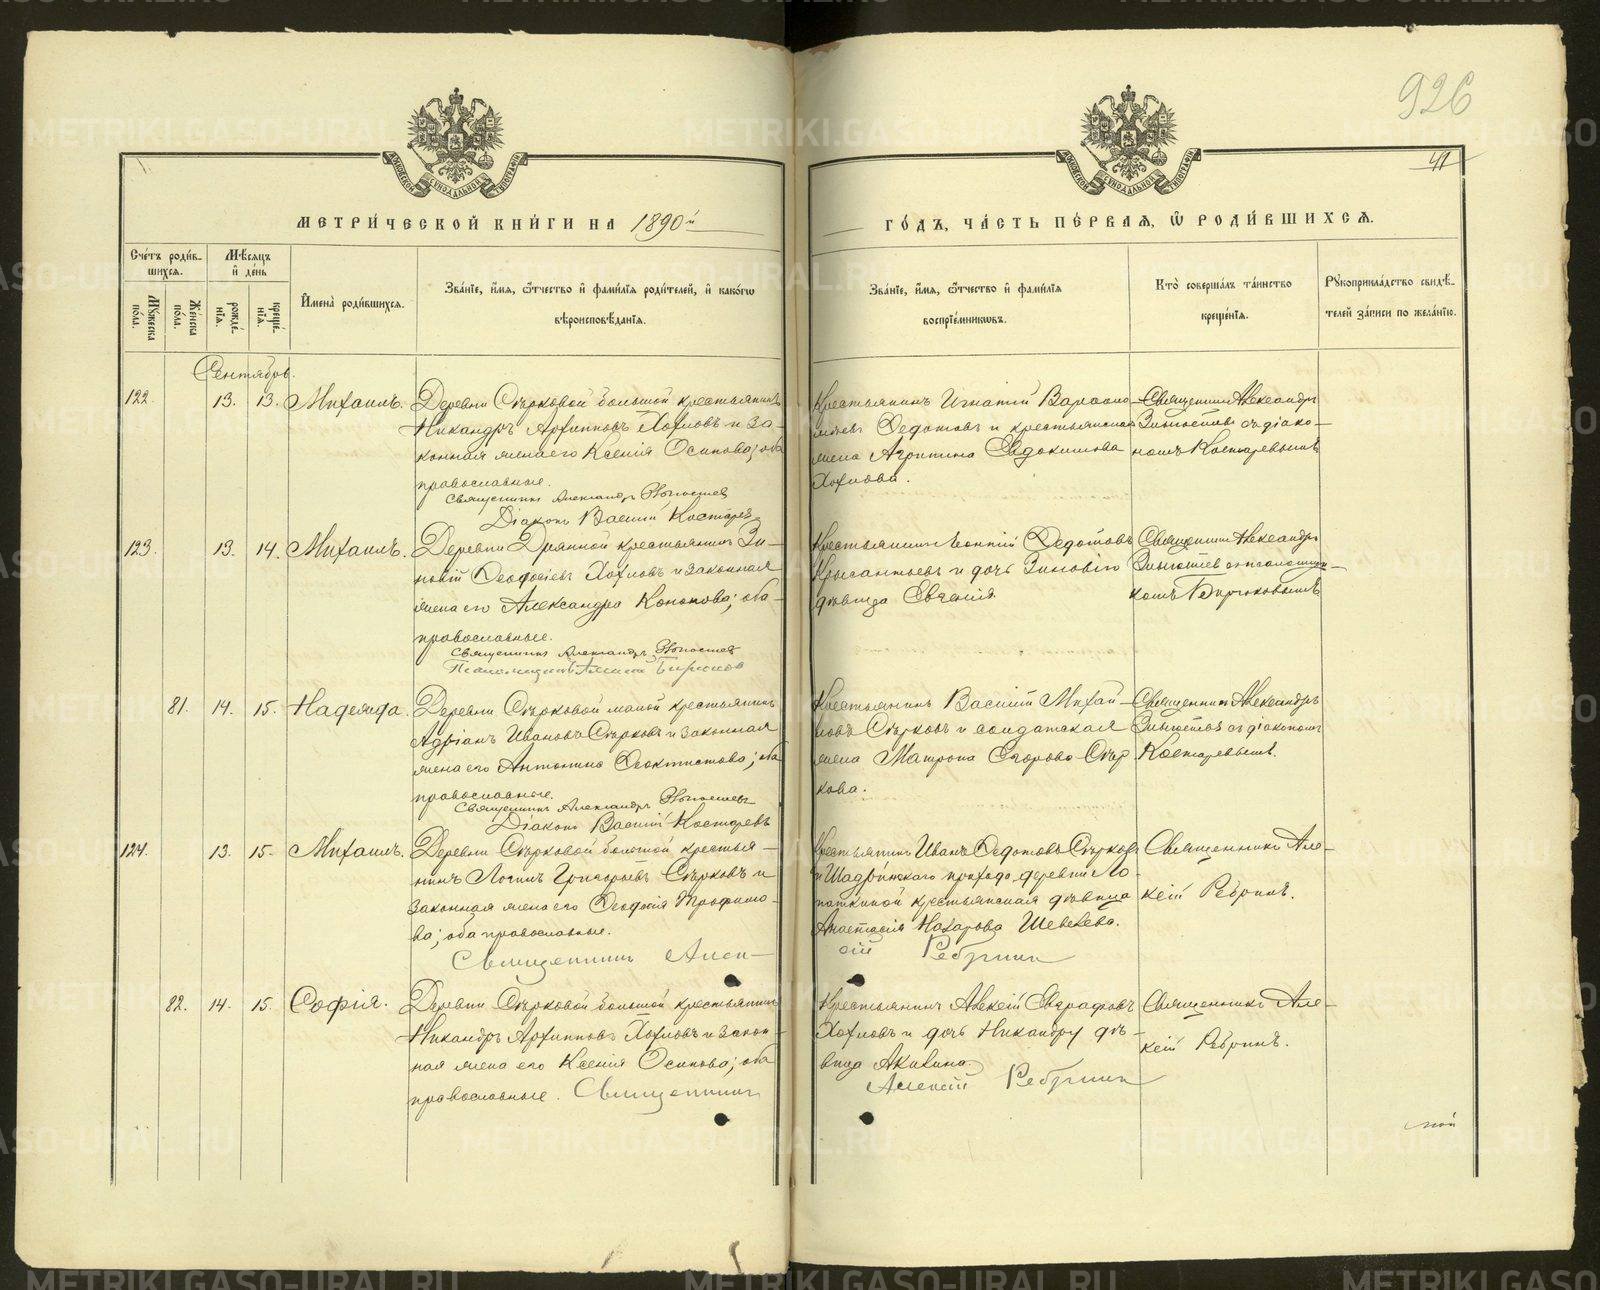 926
41
МЕТРИ́ЧЕСКОЙ КНИ́ГИ НА 1890й
ГО́ДЪ, ЧА́СТЬ ПЕ́РВАЯ, Ѡ РОДИ́ВШИХСЯ.
Сче́тъ роди́в-
шихся.
Мѣ́сяцъ
и҆ де́нь
Мꙋ́жеска по́ла.
Же́нска пола.
рожде́нїя.
креще́нїя.
И҆мена̀ роди́вшихся.
Зва́нїе, и҆́мя, ѻ҆́тчество и҆ фами́лїя роди́телей, и҆ како́гѡ
вѣроисповѣ́данїя.
Зва́нїе, и҆́мя, ѻ҆́тчество и҆ фами́лїя
воспрїе́мниковъ.
Кто̀ соверша́лъ та́инство
креще́нїя.
Рꙋкоприкла́дство свидѣ́-
телей за́писи по жела́нїю.
Сентябрь.
122. 13. 13. Михаилъ.
Деревни Сѣрковой большой крестьянинъ
Никандръ Архиповъ Хохловъ и за-
конная жена его Ксенія Осипова; оба
православные.
Священникъ Александръ
Діаконъ Василій Костаревъ
Крестьянинъ Игнатій
Федотовъ и крестьянская
жена Агрипина Евдокимова
Хохлова.
Священникъ Александръ
съ діако-
номъ Костаревымъ
123. 13. 14. Михаилъ.
Деревни крестьянинъ Зи-
новій Феодосіевъ Хохловъ и законная
жена его Александра Кононова; оба
православные.
Священникъ Александръ
Псаломщикъ Бирюковъ
Крестьянинъ Федотовъ
и дочь Зиновія
дѣвица Евгенія.
Священникъ Александръ
съ псаломщи-
комъ Бирюковымъ
81. 14. 15. Надежда.
Деревни Сѣрковой малой крестьянинъ
Адріанъ Ивановъ Сѣрковъ и законная
жена его Антонина Феоктистова; оба
православные.
Священникъ Александръ
Діаконъ Василій Костаревъ
Крестьянинъ Василій Михай-
ловъ Сѣрковъ и солдатская
жена Матрона Егорова Сѣр-
кова.
Священникъ Александръ
съ діакономъ
Костаревымъ.
124. 13. 15. Михаилъ.
Деревни Сѣрковой большой крестья-
нинъ Логинъ Григорьевъ Сѣрковъ и
законная жена его Феодосія Трофимо-
ва; оба православные.
Священникъ Алек-
Крестьянинъ Иванъ Федотовъ Сѣрковъ
и Шадринскаго прихода деревни Ло-
паткиной крестьянская дѣвица
Анастасія Назарова Шевелева.
сій Ребринъ
Священникъ Але-
ксій Ребринъ.
82. 14. 15. Софія.
Деревни Сѣрковой большой крестьянинъ
Никандръ Архиповъ Хохловъ и закон-
ная жена его Ксенія Осипова; оба
православные. Священникъ
Крестьянинъ Алексій Евграфовъ
Хохловъ и дочь Никандру дѣ-
вица Акилина.
Алексій Ребринъ
Священникъ Але-
ксій Ребринъ.